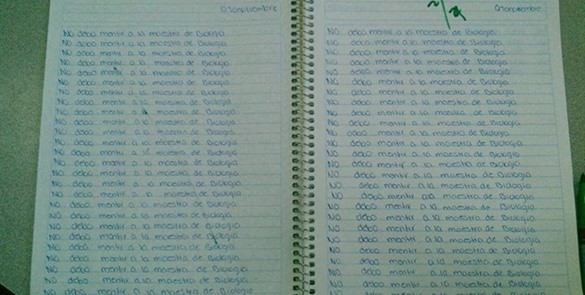 01septiembre
No debo mentir a la maestra de Biología
No debo mentir a la maestra de Biología
No debo mentir a la maestra de Biología
No debo mentir a la maestra de Biología
No debo mentir a la maestra de Biología
No debo mentir a la maestra de Biología
No debo mentir a la maestra de Biología
No debo mentir a la maestra de Biología
No debo mentir a la maestra de Biología
No debo mentir a la maestra de Biología
No debo mentir a la maestra de Biología
No debo mentir a la maestra de Biología
No debo mentir a la maestra de Biología
No debo mentir a la maestra de Biología
No debo mentir a la maestra de Biología
No debo mentir a la maestra de Biología
No debo mentir a la maestra de Biología
No debo mentir a la maestra de Biología
No debo mentir a la maestra de Biología
No debo mentir a la maestra de Biología
No debo mentir a la maestra de Biología
No debo mentir a la maestra de Biología
No debo mentir a la maestra de Biología
No debo mentir a la maestra de Biología
No debo mentir a la maestra de Biología
No debo mentir a la maestra de Biología
01septiembre
No debo mentir a la maestra de Biología
No debo mentir a la maestra de Biología
No debo mentir a la maestra de Biología
No debo mentir a la maestra de Biología
No debo mentir a la maestra de Biología
No debo mentir a la maestra de Biología
No debo mentir a la maestra de Biología
No debo mentir a la maestra de Biología
No debo mentir a la maestra de Biología
No debo mentir a la maestra de Biología
No debo mentir a la maestra de Biología
No debo mentir a la maestra de Biología
No debo mentir a la maestra de Biología
No debo mentir a la maestra de Biología
No debo mentir a la maestra de Biología
No debo mentir a la maestra de Biología
No debo mentir a la maestra de Biología
No debo mentir a la maestra de Biología
No debo mentir a la maestra de Biología
No debo mentir a la maestra de Biología
No debo mentir a la maestra de Biología
No debo mentir a la maestra de Biología
No debo mentir a la maestra de Biología
No debo mentir a la maestra de Biología
No debo mentir a la maestra de Biología